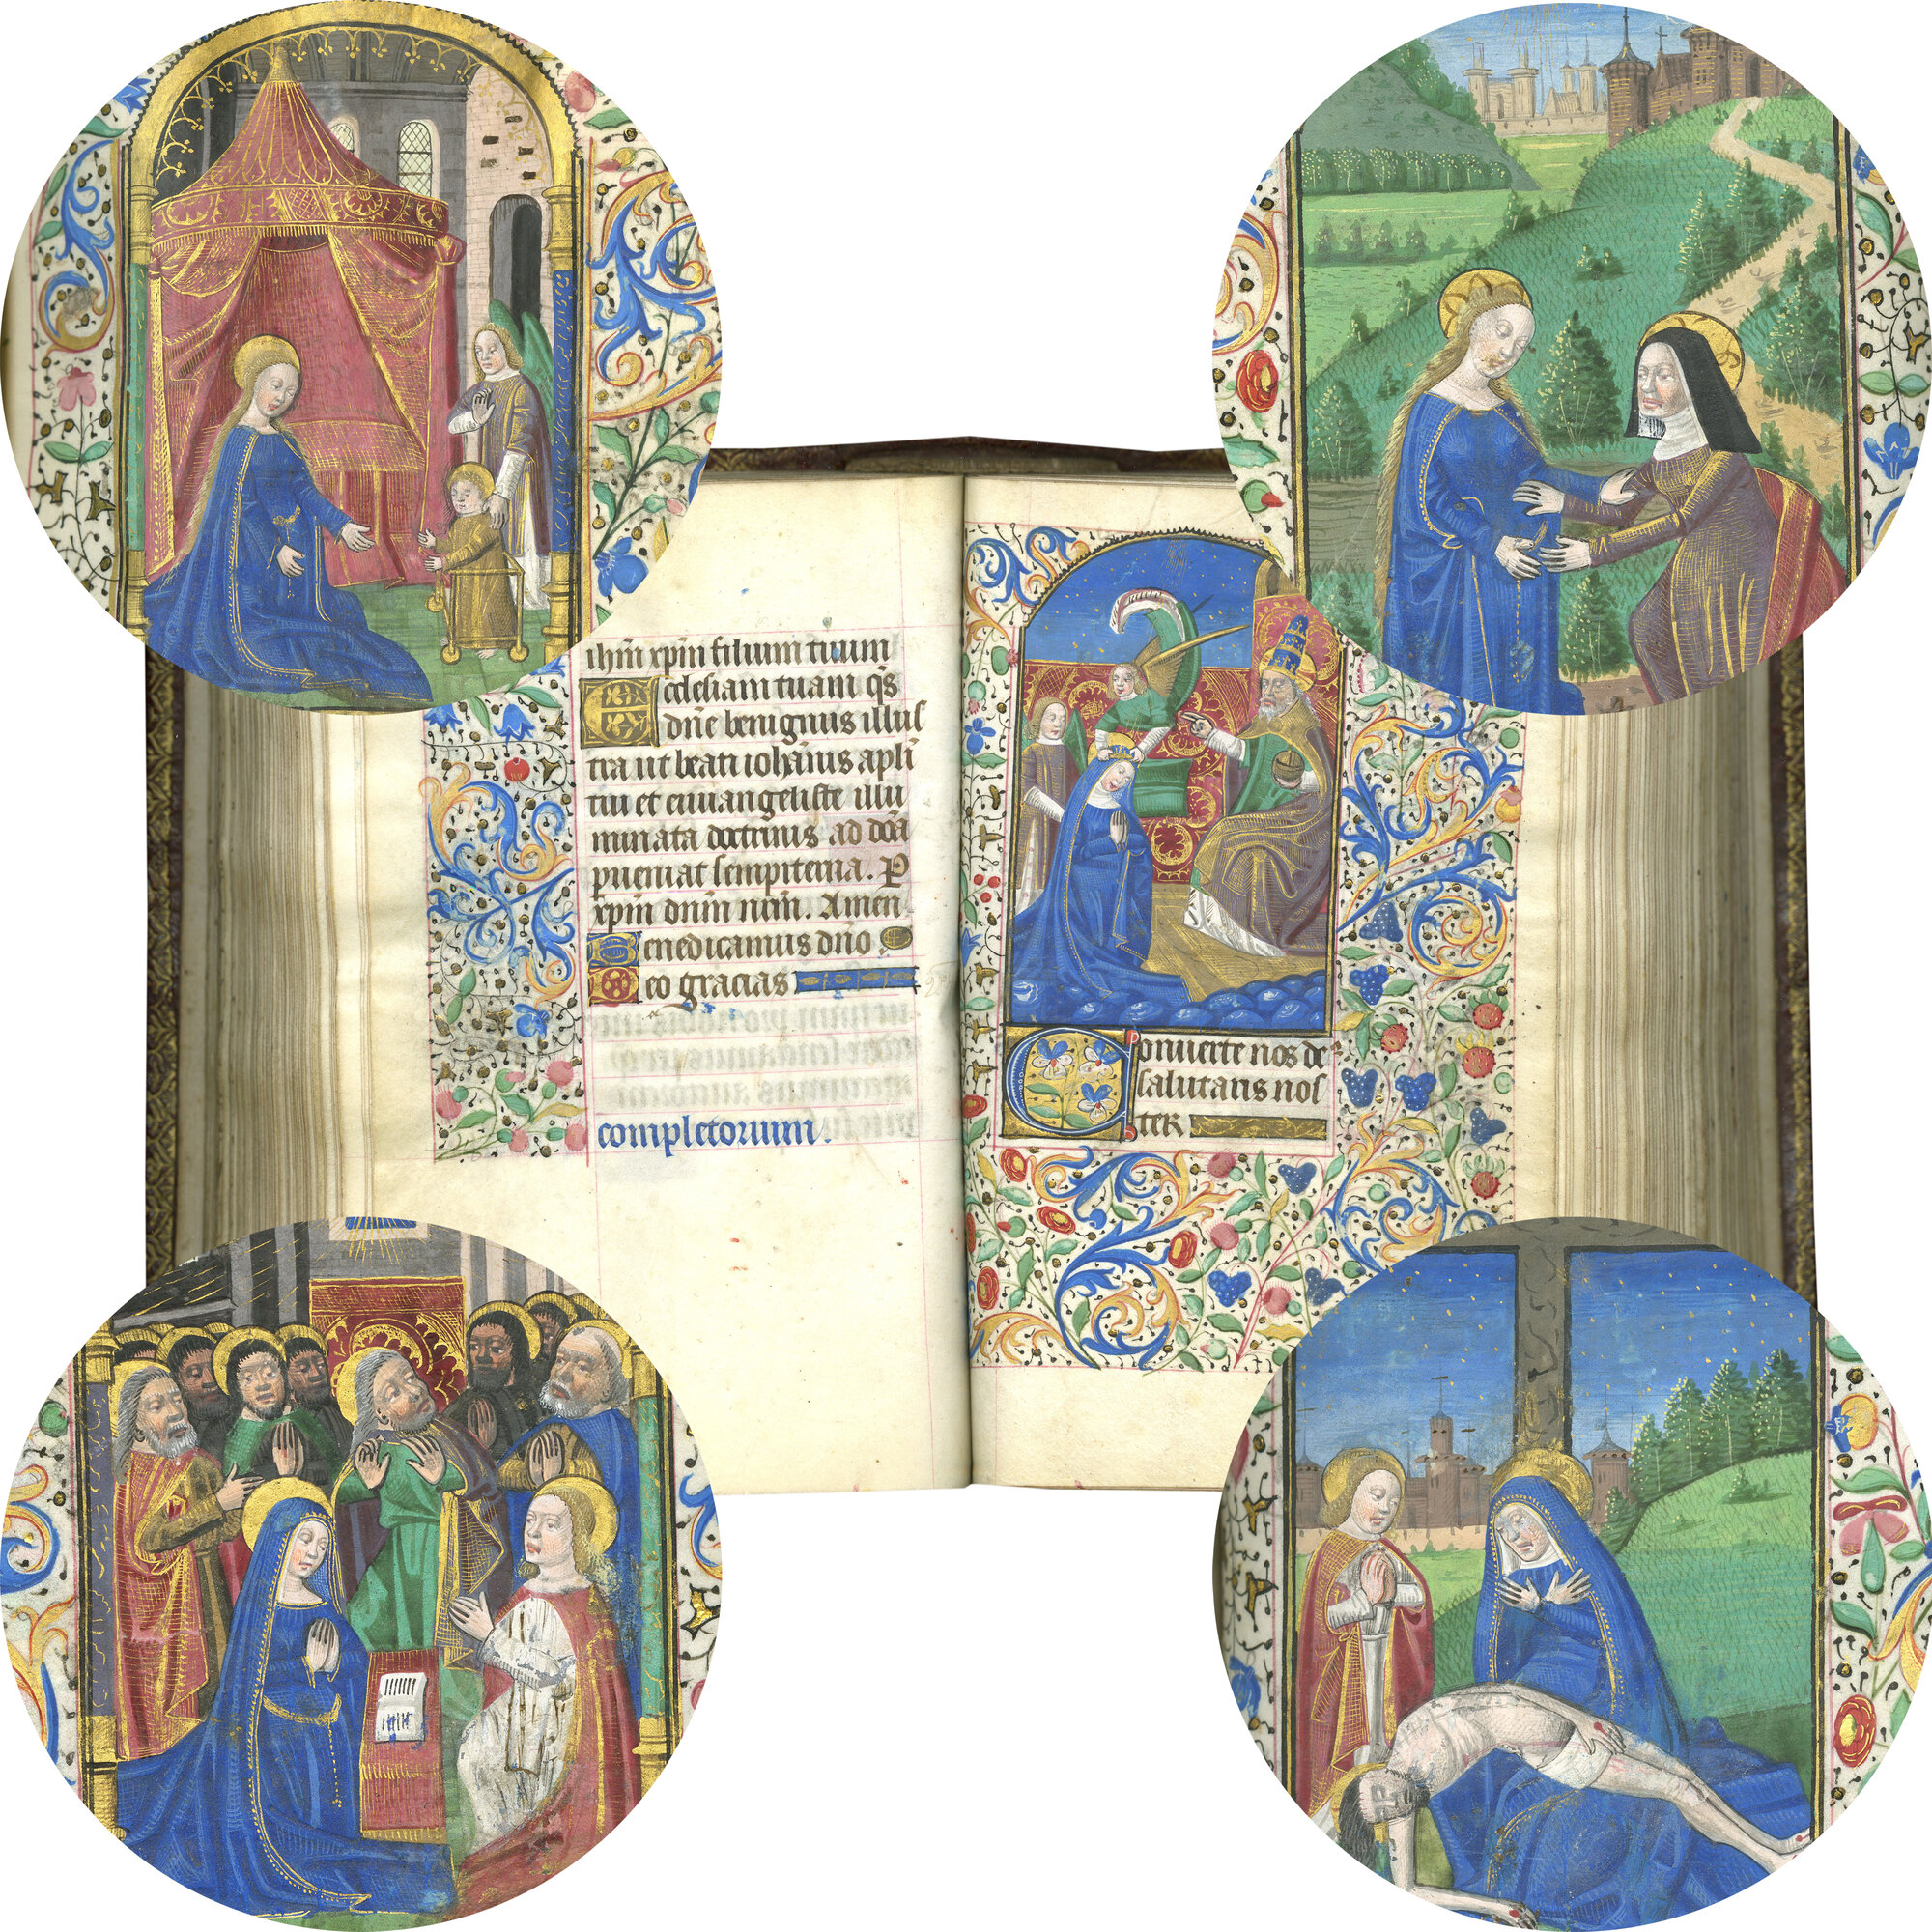 ihm̄ xp̄m filium tuum
Ecclesiam tuam qs̄
dn̄e benignus illus
tra ut beati ioh̄anis apl̄i
tui et euuangeliste illu
minata doctrinis ad dōā
p̄ueniat sempiterna. P
xp̄m dn̄m nr̄m. Amen
Benedicamus dn̄o
Deo gracias
completorium.
Conuerte nos de
salutaris nos
ter